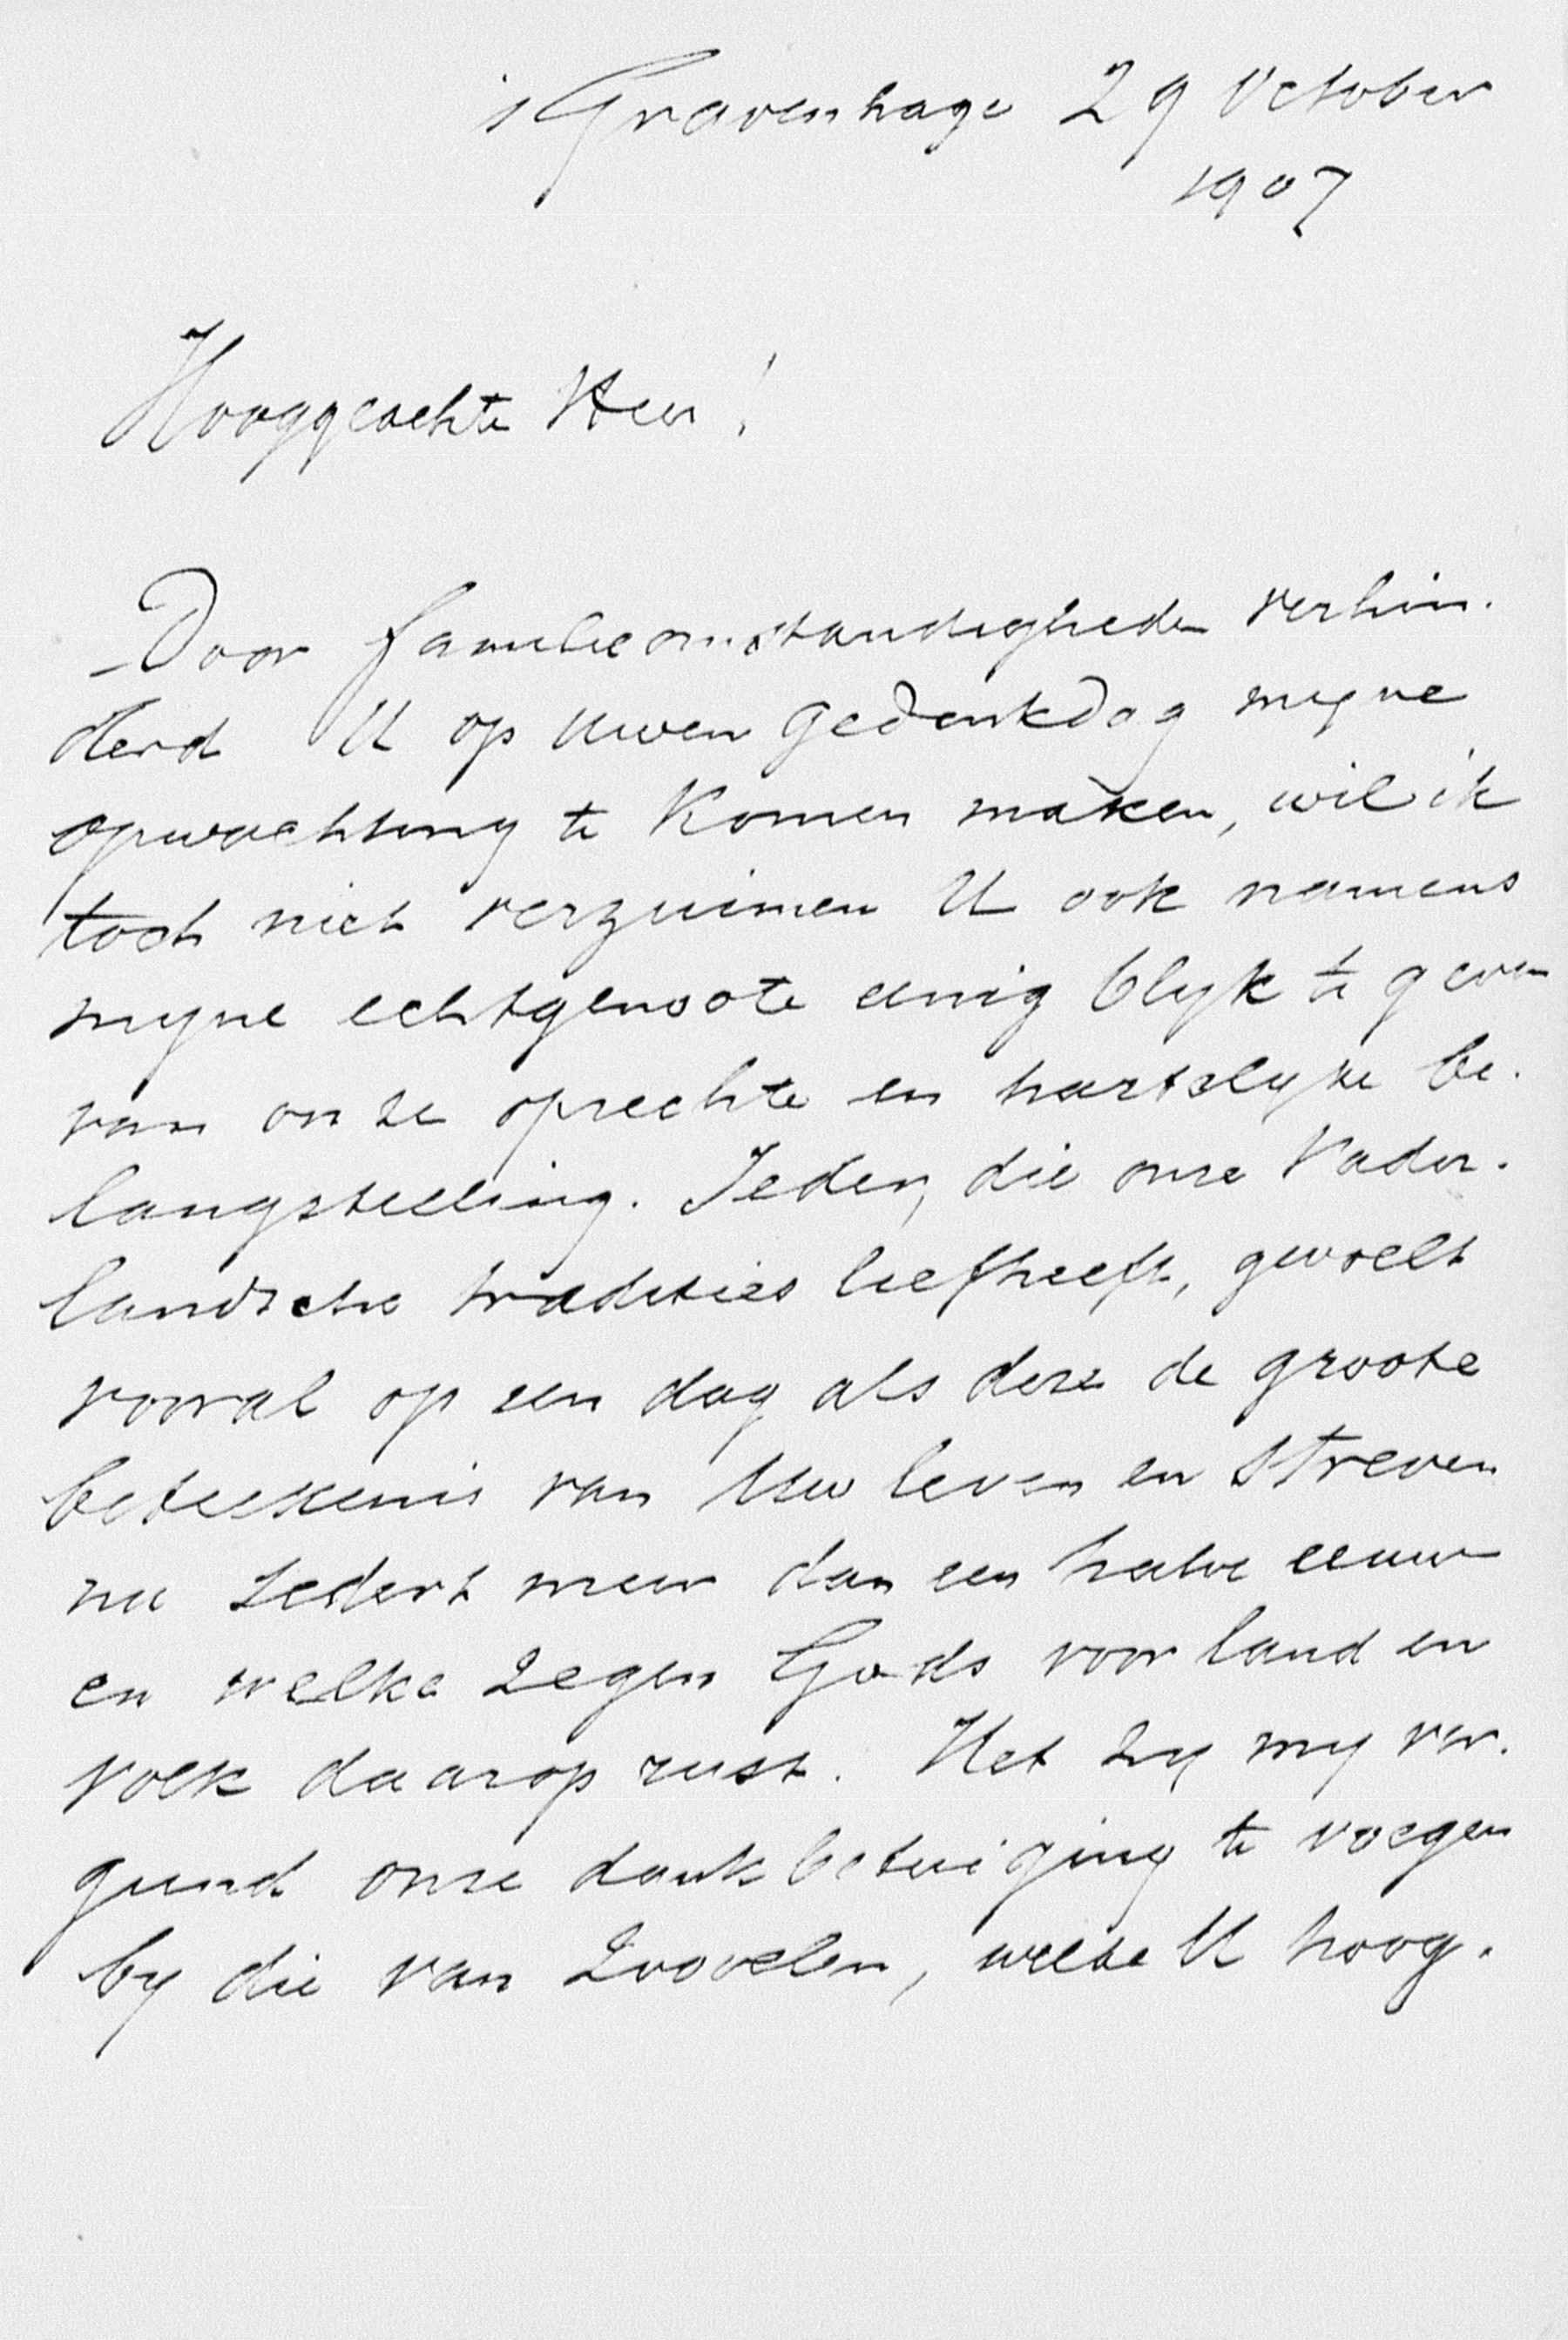 's Gravenhage 29 October
1907
Hooggeachte Heer!
Door familieomstandigheden verhin-
derd U op uwen gedenkdag myne
opwachting te komen maken, wil ik
toch niet verzuimen U ook namens
myne echtgenoote eenig blyk te geven
van onze oprechte en hartelyke be-
langstelling. Ieder, die onze Vader-
landsche tradities liefheeft, gevoelt
vooral op een dag als deze de groote
beteekenis van Uw leven en streven
nu sedert meer dan een halve eeuw
en welke zegen Gods voor land en
volk daarop rust. Het zy my ver-
gund onze dankbetuiging te voegen
by die van zoovelen, welke U hoog-